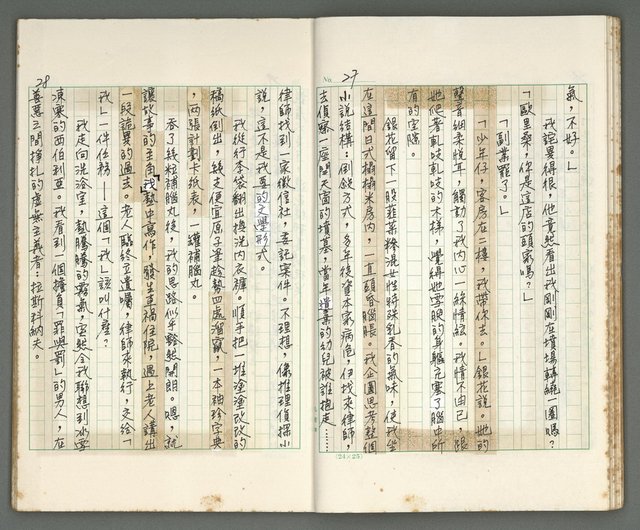 No. 27
氣，不好。」
我詫異得很，他竟然看出我剛剛在墳場轉繞一圈嗎？
「歐里桑，你是這店的頭家嗎？」
「副業罷了。」
「少年仔，客房在二樓，我帶你去。」銀花說。她的
聲音細柔悅耳，觸動了我內心一絲情絃。我情不由已，跟
她爬着軋吱軋吱的木梯，覺得她雪腴的身軀充塞了腦中所
有的空隙。
銀花留下一股韮菜粉混女性特殊乳香的氣味，使我坐
在這間日式榻榻米房內，一直頭昏腦脹。我企圖思考整個
小說結構：倒敍方式，多年後資本家病危，伊找來律師，
去偵騐一座開天窗的墳墓，當年遺棄的幼兒被誰抱走……
(24×25)
28
律師找到一家徵信社，委託案件。不理想，像推理偵探小
說，這不是我要的文學形式。
我從行李袋翻出換洗內衣褲。順手把一堆塗塗改改的
稿紙倒出，幾支便宜原子筆趁勢四處溜竄，一本袖珍字典
，兩張計劃卡紙表，一罐補腦丸。
吞了幾粒補腦丸後，我的思路似乎豁然開朗。嗯，就
讓故事的主角我熱中寫作，發生車禍住院，遇上老人講出
一段詭異的過去。老人臨終立遺囑，律師來執行，交給「
我」一件任務——這個「我」該叫什麼？
我走向洗浴室，熱騰騰的霧氣，突然令我聯想到冰雪
凍寒的西伯利亞。我看到一個擔負「罪與罰」的男人，在
善惡之間掙扎的虛無主義者：拉斯科納夫。